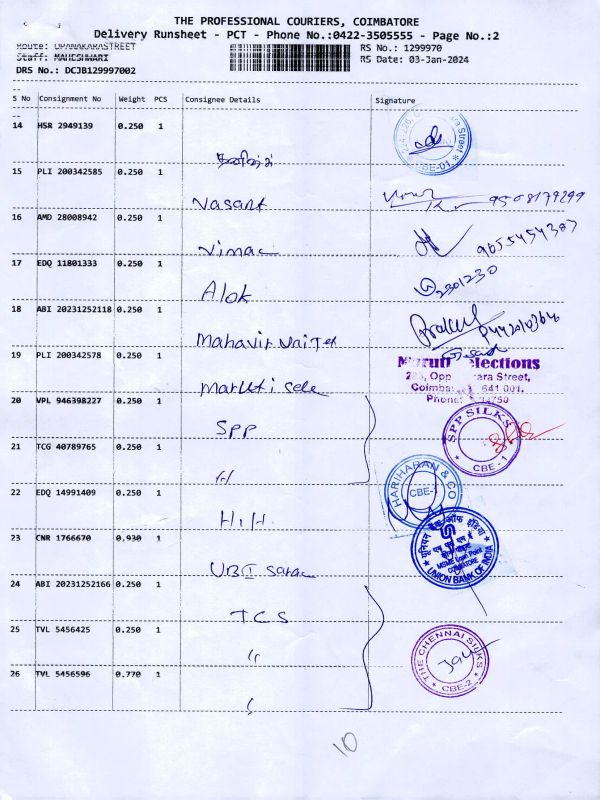 THE PROFESSIONAL COURIERS, COIMBATORE
Delivery Runsheet - PCT - Phone No.:0422-3505555 - Page No.:2
Route: OPANAKARASTREET
RS No.: 1299970
Staff: MAHESHWARI
RS Date: 03-Jan-2024
DRS No.: DCJB129997002
S No Consignment No Weight PCS Consignee Details Signature
14 HSR 2949139 0.250 1
CBE-01
15 PLI 200342585 0.250 1
Vasant
16 AMD 28008942 0.250 1
Vimac 9655454387
17 EDQ 11801333 0.250 1
Alok 2301230
18 ABI 20231252118 0.250 1
Mahavir United
19 PLI 200342578 0.250 1
Maruti Sele
Maruti Selections
Opp
Street,
641 001.
Phone:
20 VPL 946398227 0.250 1
SPP
SPP SILKS
CBE - 1
21 TCG 40789765 0.250 1
"
22 EDQ 14991409 0.250 1
H.H.
HARIHARAN & CO
CBE-1
23 CNR 1766670 0.930 1
UBI
यूनियन बैंक ऑफ इंडिया
COIMBATORE
UNION BANK OF INDIA
24 ABI 20231252166 0.250 1
TCS
25 TVL 5456425 0.250 1
"
THE CHENNAI SILKS
CBE-2
26 TVL 5456596 0.770 1
10